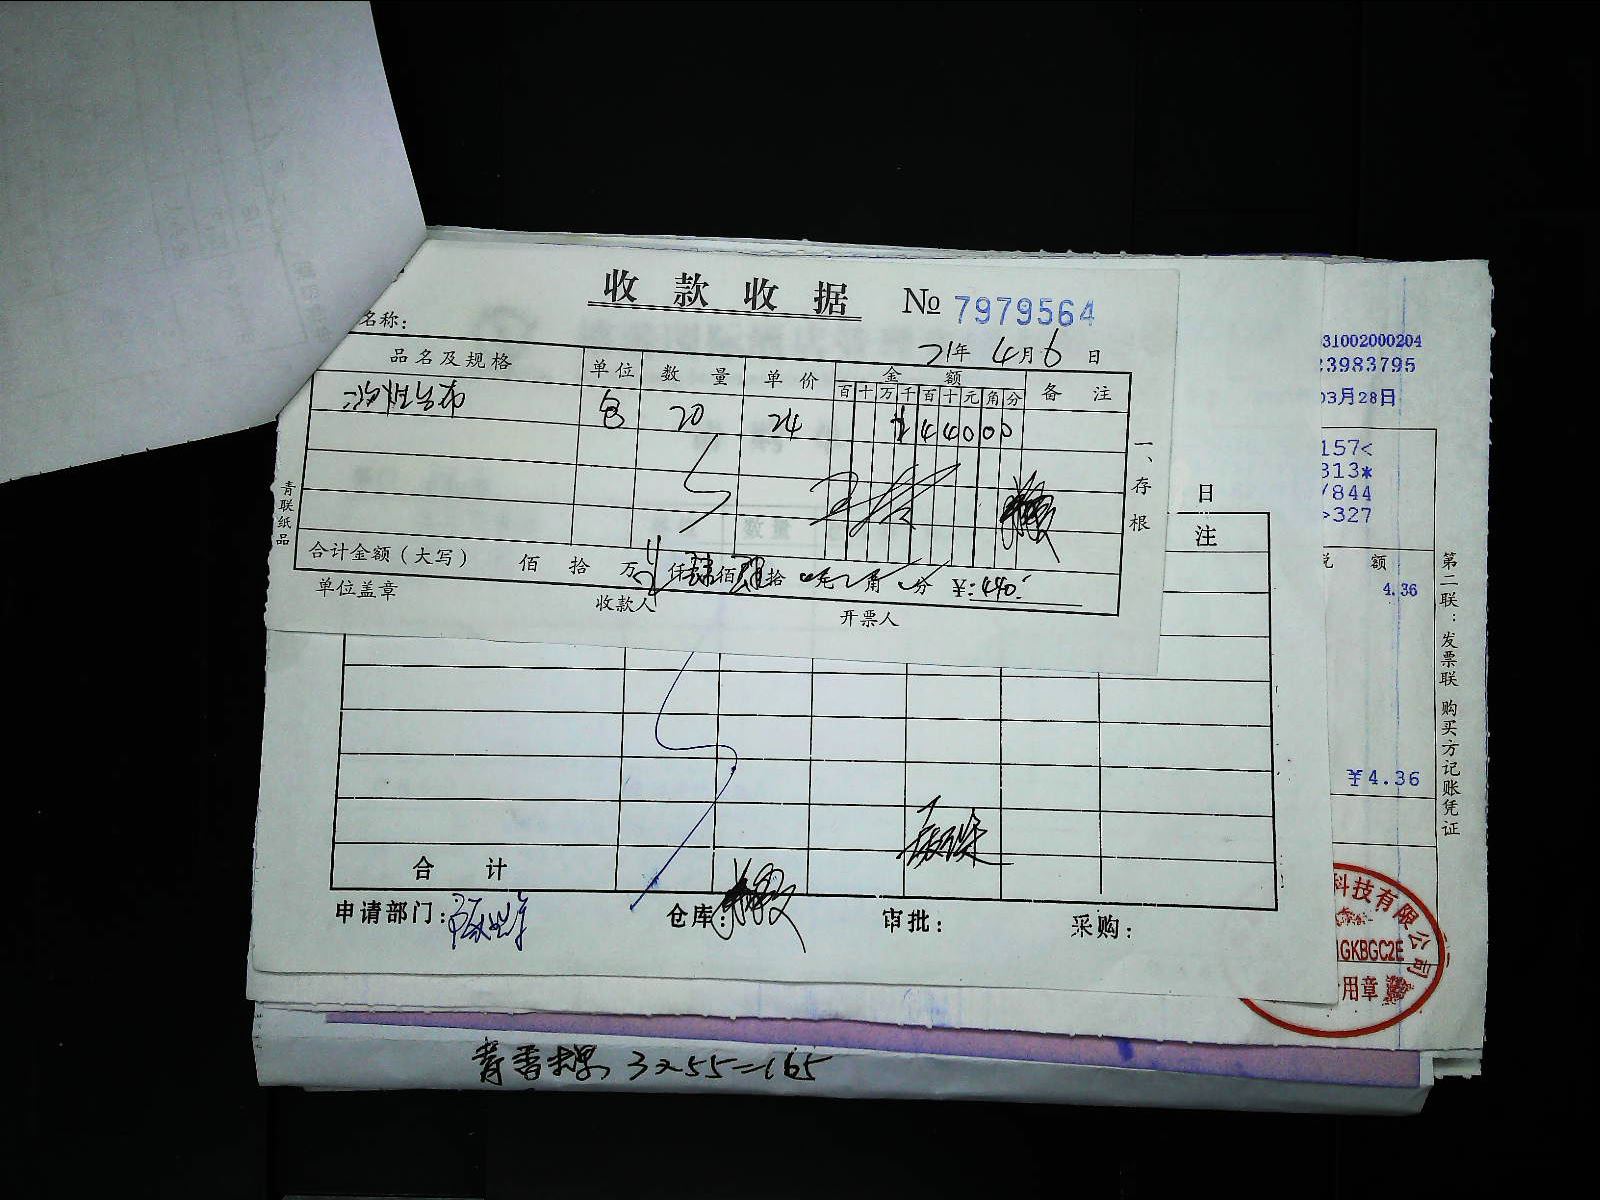 收款收据 № 7979564
名称：
21年 4月 6日
品名及规格 单位 数量 单价 金额 备注
百 十 万 千 百 十 元 角 分
包 20 24 4 4 0 0 0
合计金额（大写） 佰 拾 万 仟 肆 佰 肆 拾 元 角 分 ¥：440
单位盖章 收款人 开票人
青联纸品
一、存根
日
注
合计
申请部门： 仓库： 审批： 采购：
31002000204
23983795
03月28日
157<
313*
/844
>327
额
4.36
¥4.36
第二联：发票联 购买方记账凭证
科技有限公司
GKBGC2E
用章
3×55=165